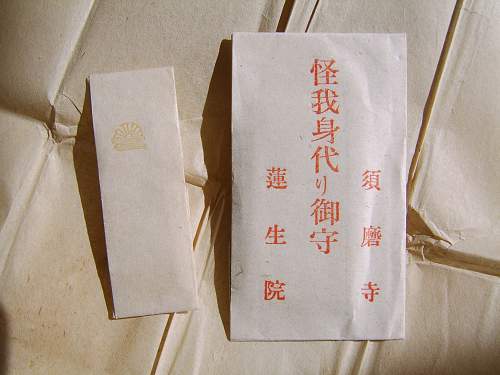 須磨寺
怪我身代り御守
蓮生院